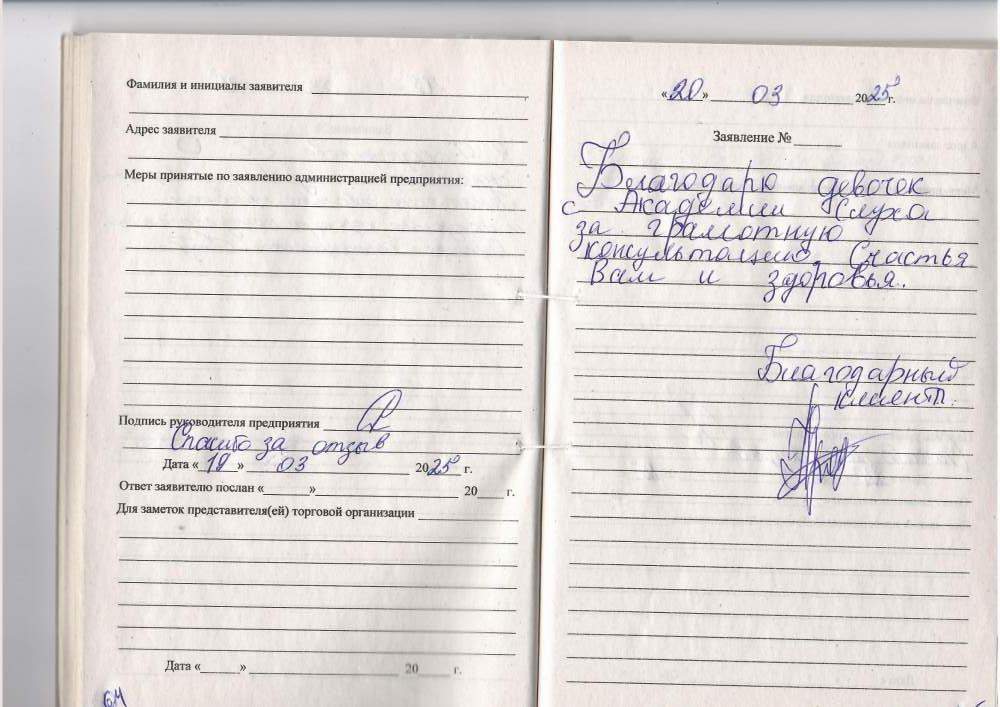 Фамилия и инициалы заявителя
Адрес заявителя
Меры принятые по заявлению администрацией предприятия:
Подпись руководителя предприятия
Спасибо за отзыв
Дата «19» 03 2025 г.
Ответ заявителю послан « » 20 г.
Для заметок представителя(ей) торговой организации
Дата « » 20 г.
64
«20» 03 2025 г.
Заявление №
Благодарю девочек
с Академии Слуха
за грамотную
консультацию. Счастья
Вам и здоровья.
Благодарный
клиент.